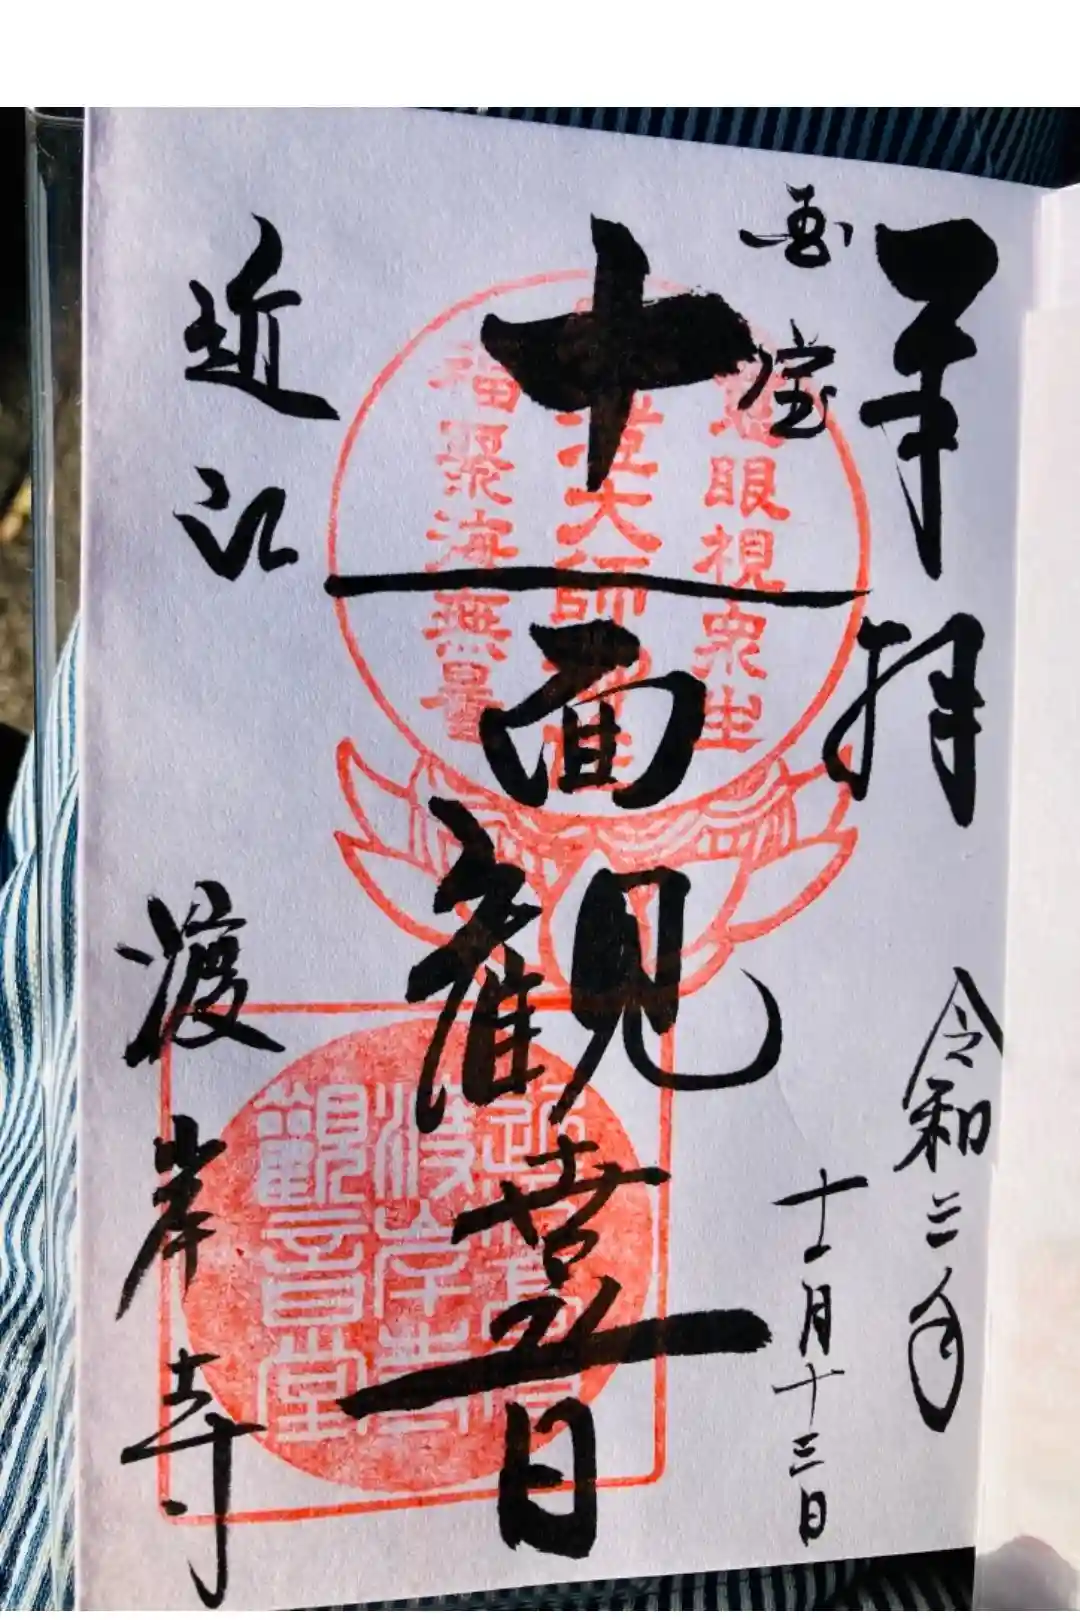 奉拝
国宝
令和二年
十一月十三日
十一面観世音
近江
渡岸寺
慈眼視衆生
大師
福聚海無量
渡岸寺
觀音堂